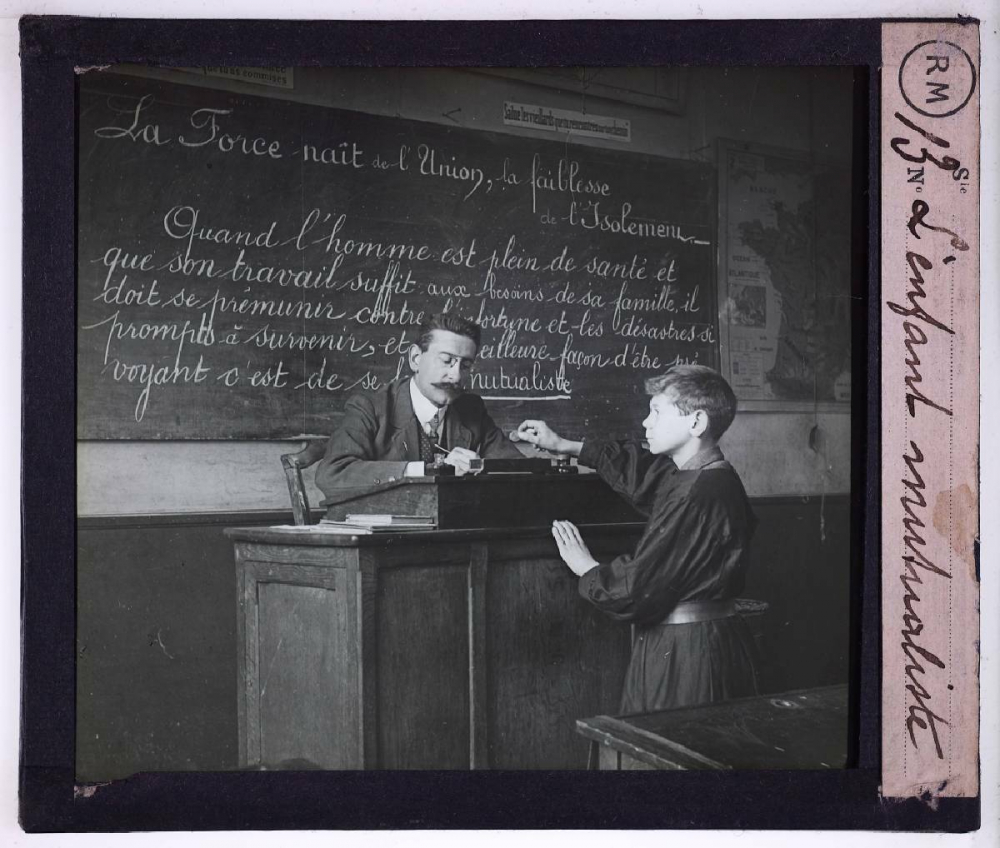 que tu as commises
Salue les vieillards que tu rencontres sur ton chemin
La Force naît de l'Union, la faiblesse
de l'Isolement
Quand l'homme est plein de santé et
que son travail suffit aux besoins de sa famille, il
doit se prémunir contre l'infortune et les désastres si
prompts à survenir, et eilleure façon d'être pré
voyant c'est de se mutualiste
OCÉAN
ATLANTIQUE
RM
13 Sie
No L'enfant mutualiste